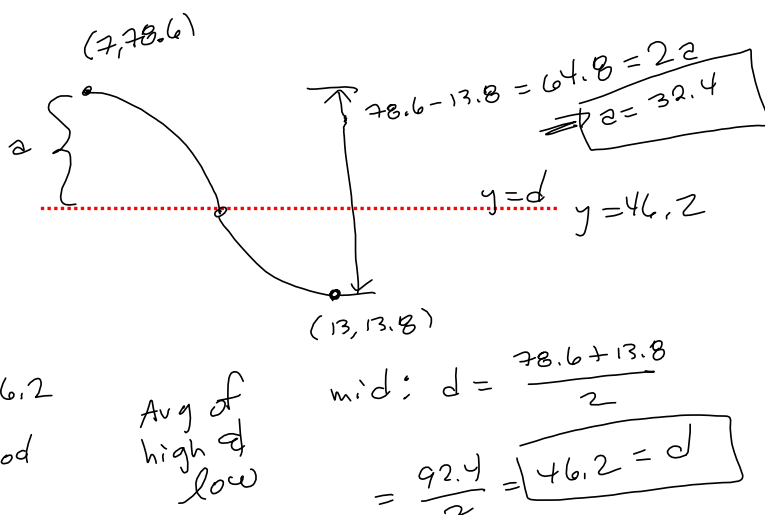 (7,78.6)
78.6-13.8 = 64.8 = 2a
⇒ a = 32.4
a
y=d
y=46.2
(13,13.8)
6.2
od
Avg of
high &
low
mid: d = 78.6+13.8
2
= 92.4
2
= 46.2 = d